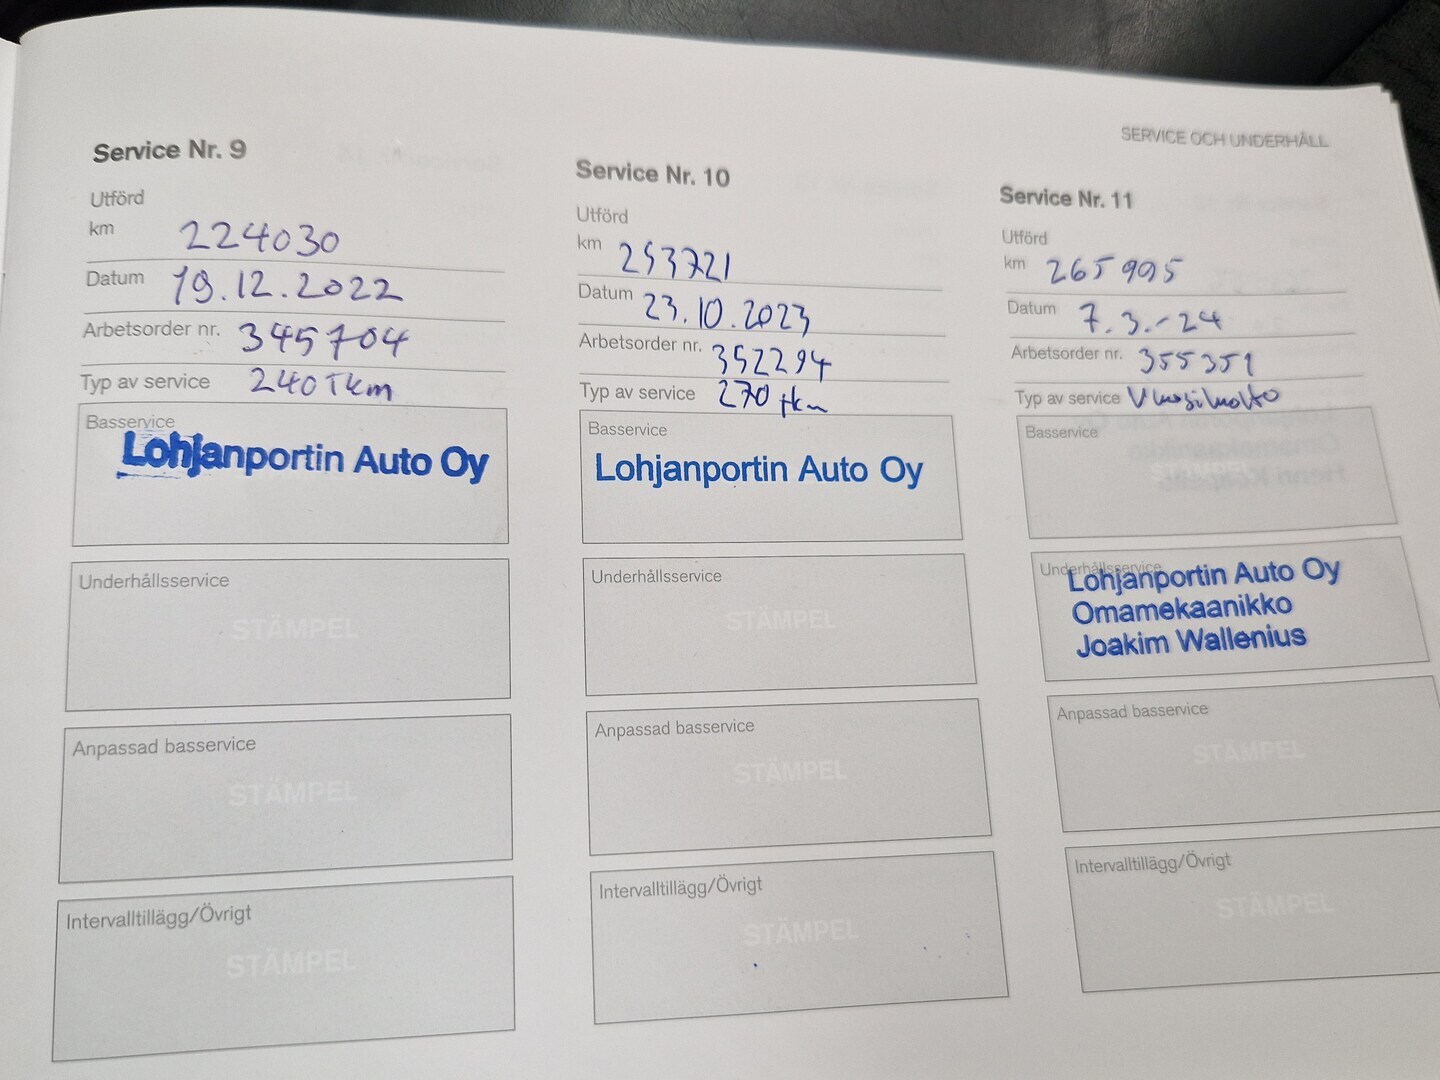 SERVICE OCH UNDERHÅLL
Service Nr. 9
Utförd
km 224030
Datum 19.12.2022
Arbetsorder nr. 345704
Typ av service 240Tkm
Basservice
Lohjanportin Auto Oy
Underhållsservice
STÄMPEL
Anpassad basservice
STÄMPEL
Intervalltillägg/Övrigt
STÄMPEL
Service Nr. 10
Utförd
km 253721
Datum 23.10.2023
Arbetsorder nr. 352294
Typ av service 270 tkm
Basservice
Lohjanportin Auto Oy
Underhållsservice
STÄMPEL
Anpassad basservice
STÄMPEL
Intervalltillägg/Övrigt
STÄMPEL
Service Nr. 11
Utförd
km 265995
Datum 7.3.-24
Arbetsorder nr. 355351
Typ av service Vuosihuolto
Basservice
Underhållsservice
Lohjanportin Auto Oy
Omamekaanikko
Joakim Wallenius
Anpassad basservice
STÄMPEL
Intervalltillägg/Övrigt
STÄMPEL